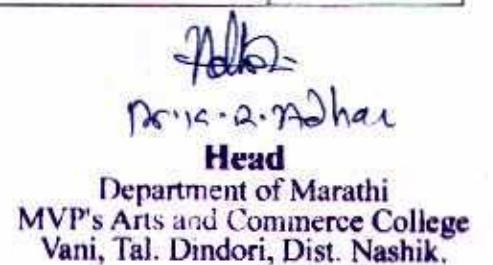 Head
Department of Marathi
MVP's Arts and Commerce College
Vani, Tal. Dindori, Dist. Nashik.